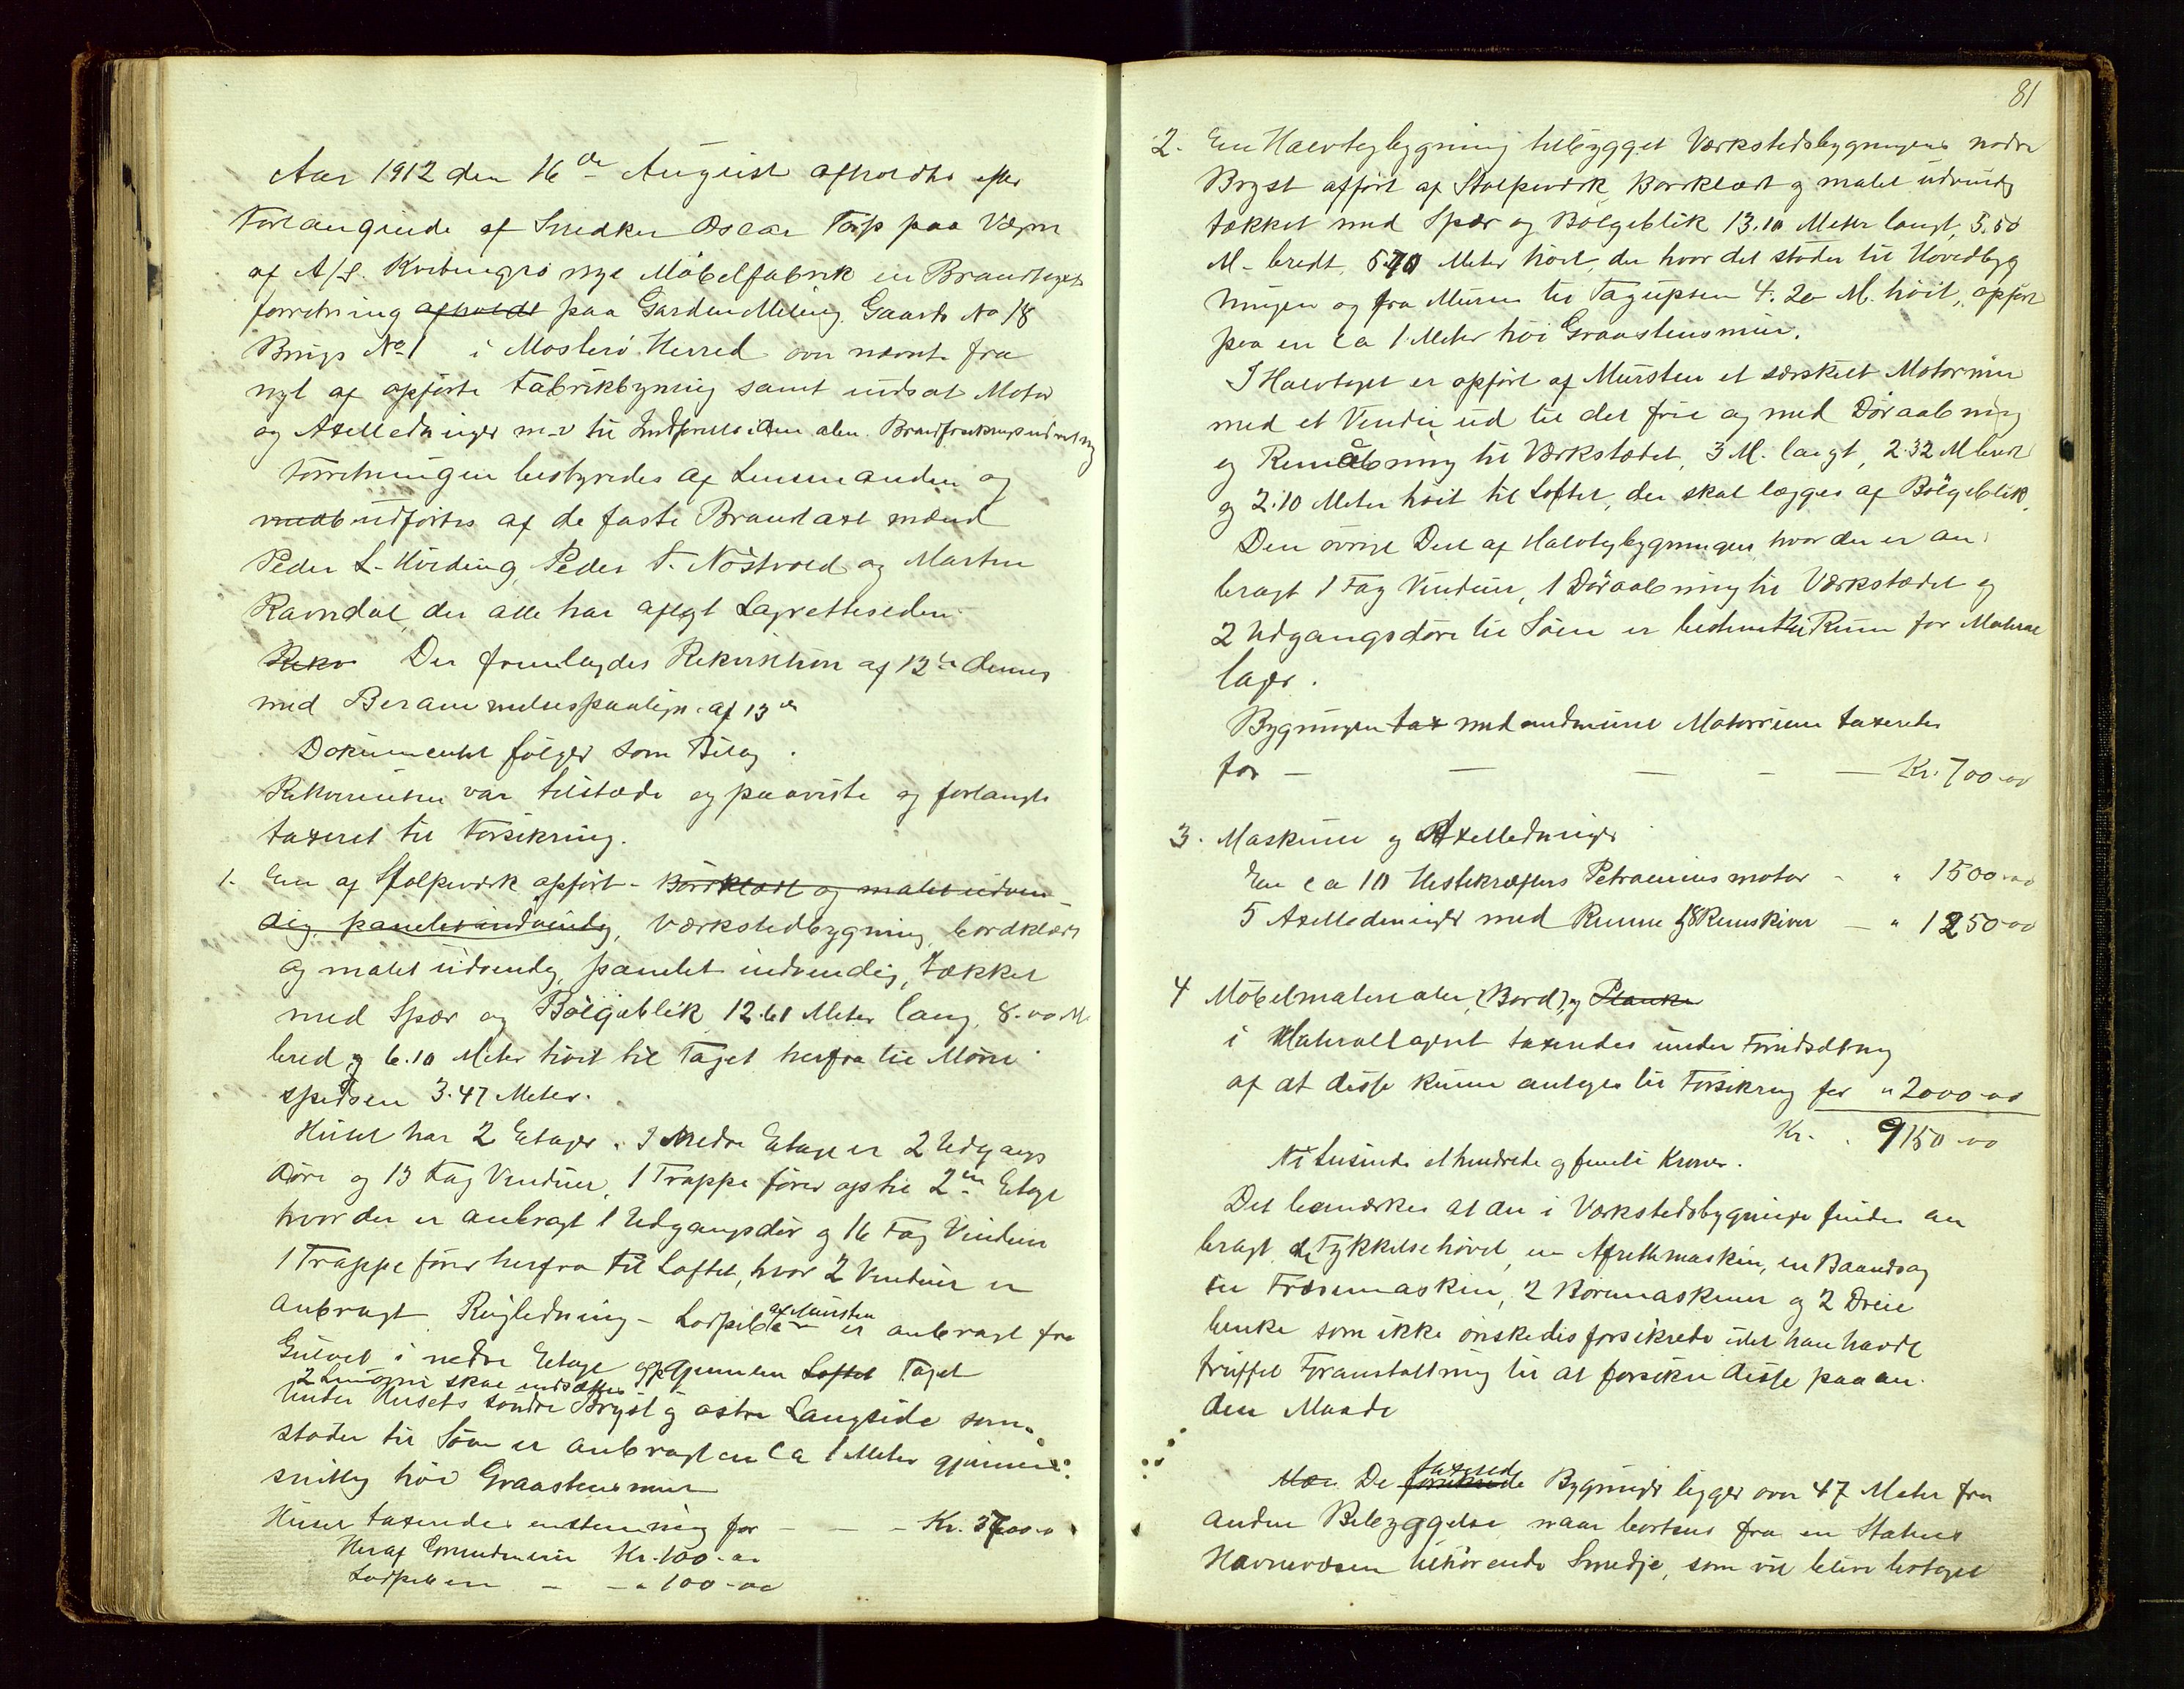 Aar 1912 den 16de August afholdtes efter
Forlangende af Snedker Oscar Tarp paa Vegne
af A/S. Kvitingsø nye Möbelfabrik en Brandtaxt
forretning afholdt paa Garden Meling Gaards No 18
Brugs No 1 i Mosterö Herred over nævnte fra
nyt af opförte Fabrikbygning samt indsat Motor
og Axelledninger m-v til Indforsikring i den alm. Brandforsikringsindretning
Forretningen bestyredes af Lensmanden og
medb udförtes af de faste Brandtaxt mænd
Peder L. Hviding, Peder T. Nöstvold og Martin
Ravndal, der alle har aflagt Lagretteseden.
Rekv Der fremlagdes Rekvisition af 12te dennes
med Berammelsespaategn. af 13de
Dokumentet fölger som Bilag.
Rekvirenten var tilstede og paaviste og forlangte
taxeret til Forsikring.
1. En af Stolpeverk opfört - Bordklædt og malet udven-
dig, panelet indvendig, Værkstedbygning, bordklædt
og malet udvendig, panelet indvendig, tækket
med Spær og Bölgeblik 12.61 Meter lang, 8.00 M.
bred og 6.10 Meter höit til Taget herfra til Möne
spidsen 3.47 Meter.
Huset har 2 Etager. I Nedre Etage er 2 Udgangs
döre og 13 Fag Vinduer, 1 Trappe förer op til 2en Etage
hvor der er anbragt 1 Udgangsdör og 16 Fag Vinduer
1 Trappe förer herfra til Loftet, hvor 2 Vinduer er
anbragt Rögledning - Lodpibe af Mursten er anbragt fra
Gulvet i nedre Etage op gjennem Loftet Taget
2 Limovne skal indsættes
Under Husets söndre Bryst og östre Langside som
stöder til Söen er anbragt en ca 1 Meter gjennem
snitlig höi Graastensmur
Huset taxeredes enstemmig for - - - Kr. 3700.00
Heraf Grundmuren Kr. 100.00
Lodpiben - - " 100-00
81
2. En Halvtagbygning tilbygget Værkstedsbygningens nordre
Bryst opfört af Stolpeverk, Bordklædt og malet udvendig
tækket med Spær og Bölgeblik 13.10 Meter langt, 3.50
M. bredt, 5.70 Meter höit, der hvor det stöder til Hovedbyg
ningen og fra Muren til Tagupsen 4.20 M. höit, opfört
paa en ca 1 Meter höi Graastensmur.
I Halvtaget er opfört af Mursten et særskilt Motorrum
med et Vindu ud til det frie og med Döraabning
og Remaabning til Værkstedet, 3 M. langt, 2.32 M bredt
og 2.10 Meter höit til Loftet, der skal lægges af Bölgeblik.
Den övrige Del af Halvtagbygningen hvor der er an
bragt 1 Fag Vinduer, 1 Döraabning til Værkstedet og
2 Udgangsdöre til Söen er bestemt til Rum for Material
lager.
Bygningen tax med indmuret Motorrum taxeredes
for - - - - - Kr. 700-00
3. Maskiner og Axelledninger
En ca 10 Hestekræfters Petroleumsmotor - " 1500-00
5 Axelledninger med Remme og 8 Remskiver - " 1250-00
4 Möbelmaterialer, (Bord), og Planker
i Materiallageret taxeredes under Forudsætning
af at disse kunne antages til Forsikring for " 2000-00
Kr. 9150-00
Ni tusinde et hundrede og femti Kroner.
Det bemærkes at der i Værkstedsbygningen findes an
bragt, en Tykkelsehövel, en Afretmaskin, en Baandsag
en Fræsemaskin, 2 Boremaskiner og 2 Dreie
benke som ikke önskedes forsikrede idet han havde
truffet Foranstaltning til at forsikre disse paa an-
den Maade
De taxerede forsikrede Bygninger ligger over 47 Meter fra
anden Bebyggelse naar bortsees fra en Statens
Havnevæsen tilhörende Smedje, som vil blive bortaget